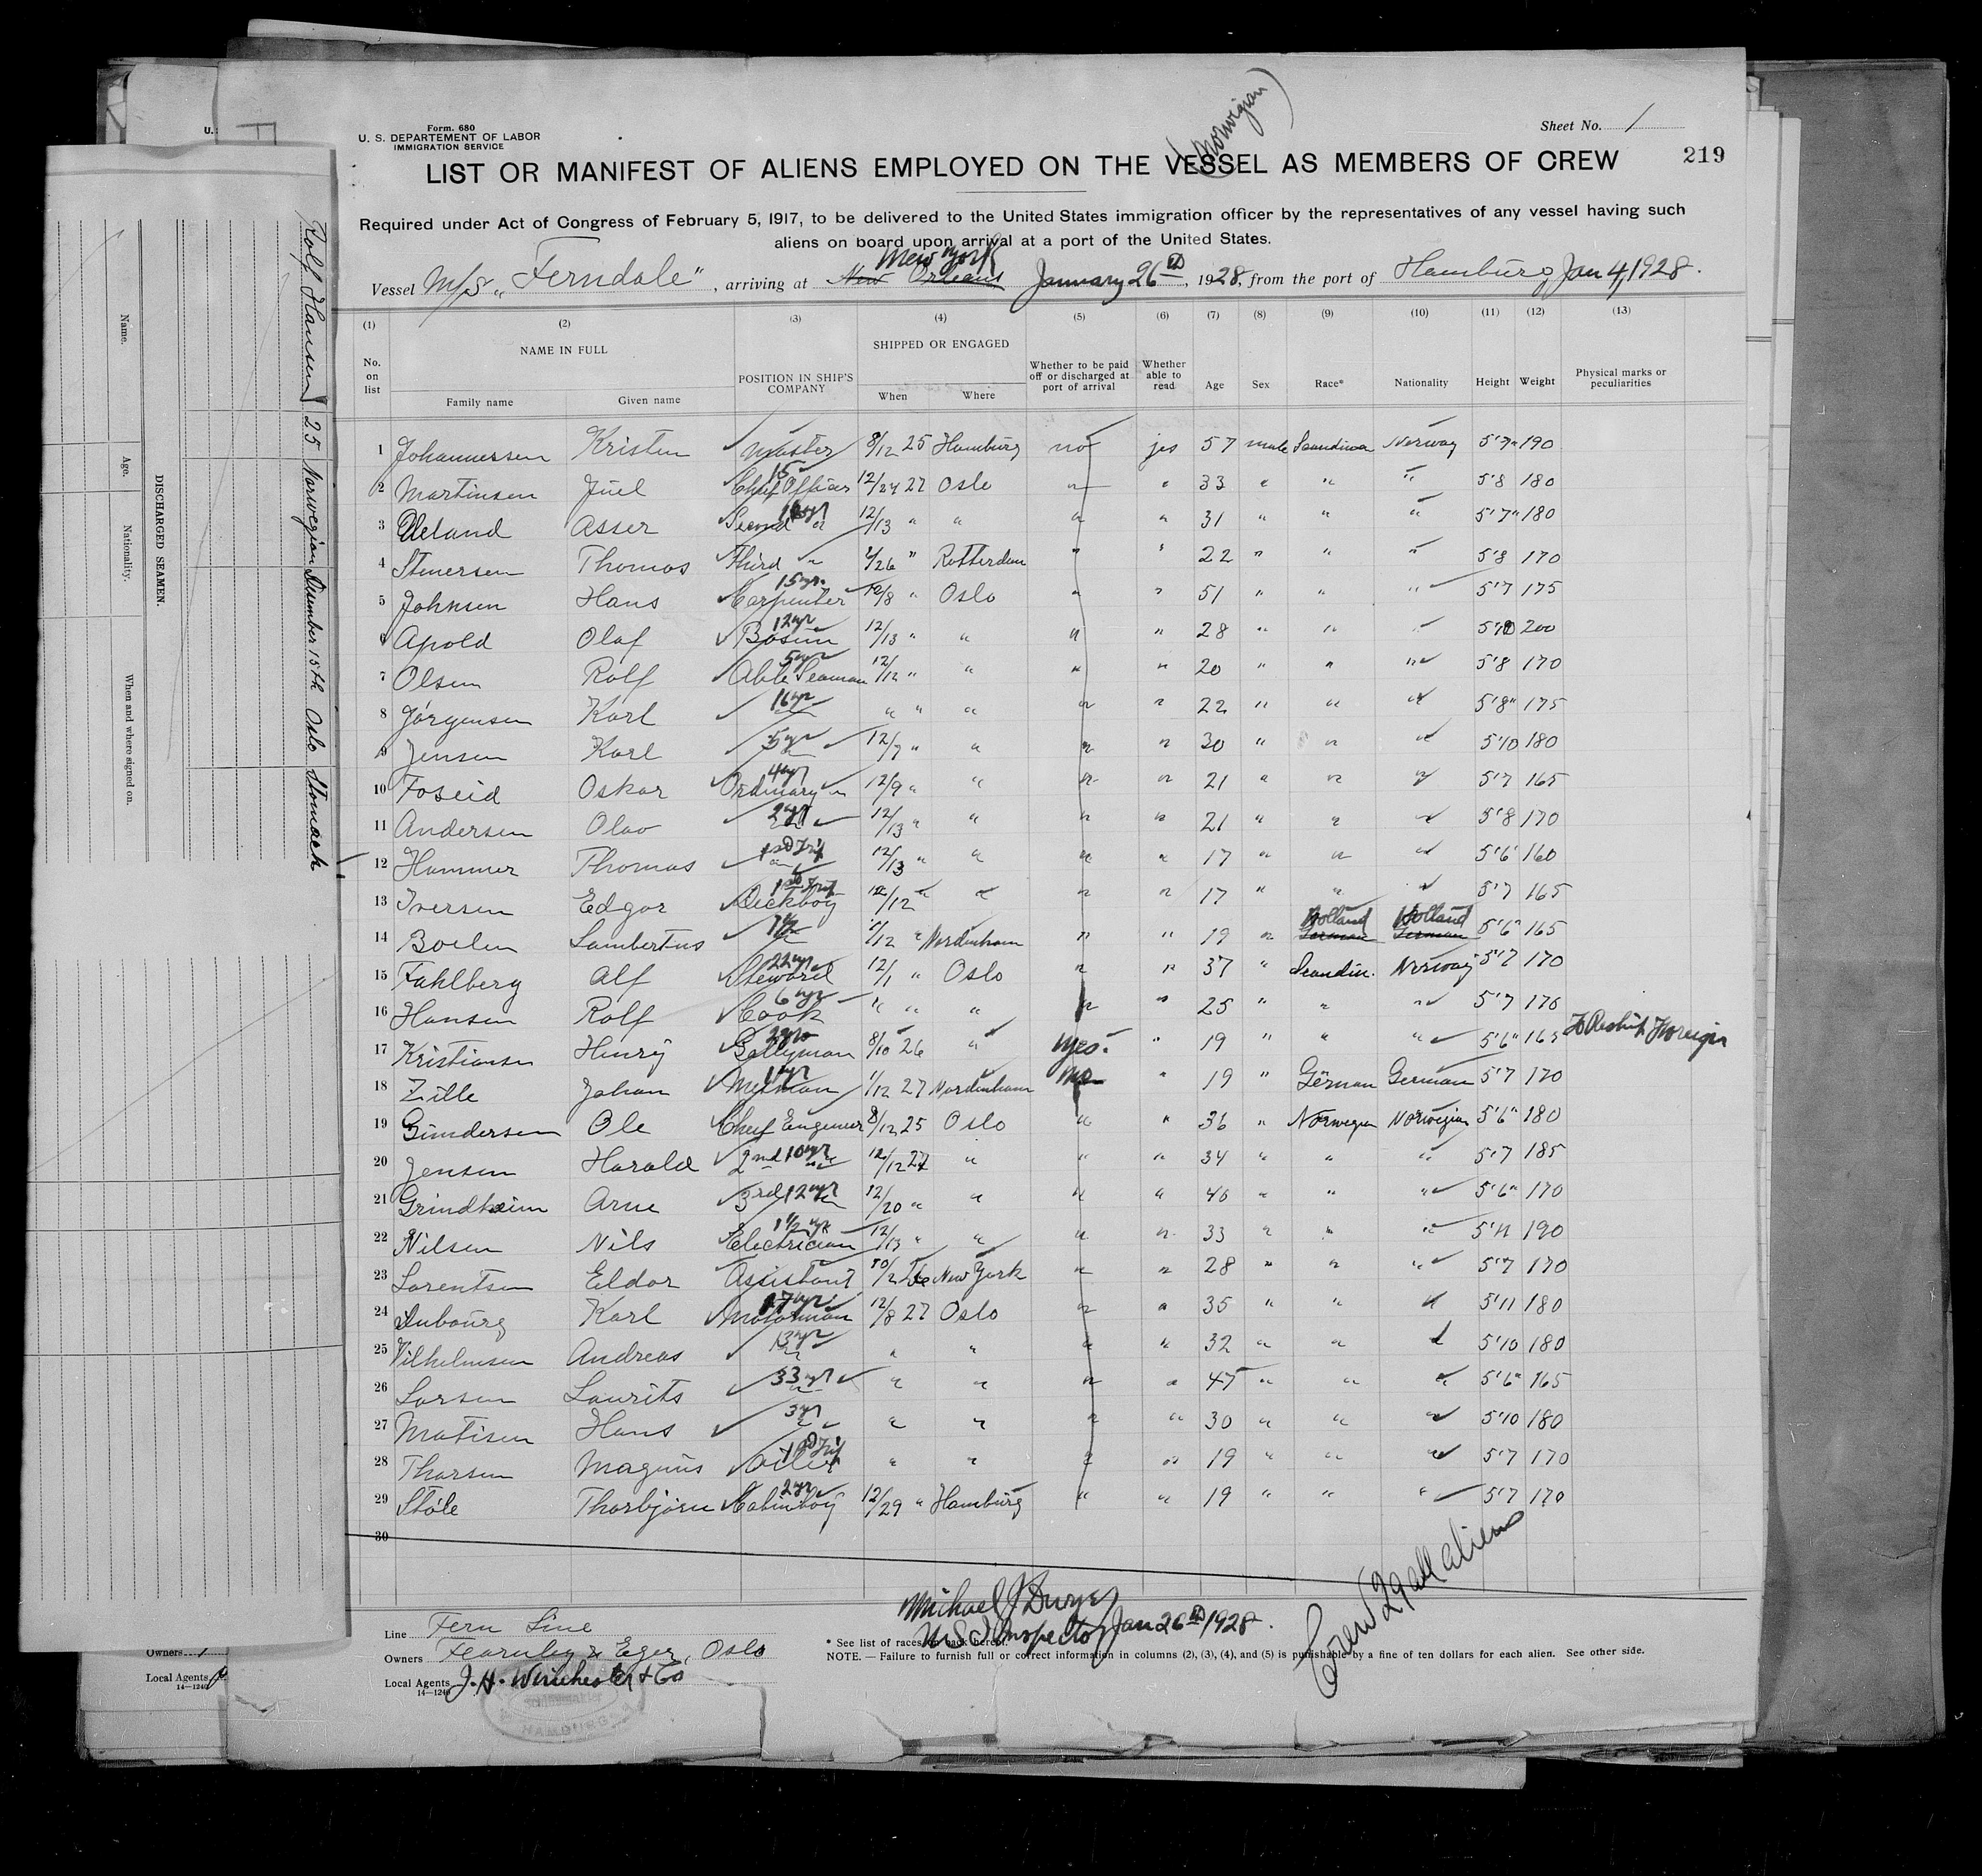 (Norwegian)
Form. 680
U. S. DEPARTEMENT OF LABOR
IMMIGRATION SERVICE
Sheet No. 1
LIST OR MANIFEST OF ALIENS EMPLOYED ON THE VESSEL AS MEMBERS OF CREW
219
Required under Act of Congress of February 5, 1917, to be delivered to the United States immigration officer by the representatives of any vessel having such
aliens on board upon arrival at a port of the United States.
New York
Vessel M/S „Ferndale", arriving at New Orleans January 26th, 1928, from the port of Hamburg, Jan 4, 1928.
(1) (2) (3) (4) (5) (6) (7) (8) (9) (10) (11) (12) (13)
No. on list NAME IN FULL POSITION IN SHIP'S COMPANY SHIPPED OR ENGAGED Whether to be paid off or discharged at port of arrival Whether able to read Age Sex Race* Nationality Height Weight Physical marks or peculiarities
Family name Given name When Where
1 Johannessen Kristen Master 8/12 25 Hamburg no yes 57 male Scandinav Norway 5'7" 190
2 Martinsen Juel 15 Chief Officer 12/24 27 Oslo " " 33 " " " 5'8 180
3 Ueland Asser Second " 12/13 " " " " 31 " " " 5'7" 180
4 Stenersen Thomas Third " /26 " Rotterdam " " 22 " " " 5'8 170
5 Johnsen Hans 15 yr. Carpenter 12/8 " Oslo " " 51 " " " 5'7 175
6 Apold Olaf 12 yr Bosun 12/13 " " " " 28 " " " 5'10 200
7 Olsen Rolf 5 yr Able Seaman 12/12 " " " " 20 " " " 5'8 170
8 Jörgensen Karl " " " " " " 22 " " " 5'8" 175
9 Jensen Karl 5 yr " 12/7 " " " " 30 " " " 5'10 180
10 Foseid Oskar 4 yr Ordinary " 12/9 " " " " 21 " " " 5'7 165
11 Andersen Olav 2 yr " 12/13 " " " " 21 " " " 5'8 170
12 Hammer Thomas 1st Trip " 12/13 " " " " 17 " " " 5'6 160
13 Iversen Edgar 1st Trip Deckboy 12/12 " " " " 17 " " " 5'7 165
14 Boelen Lambertus " /12 " Nordenham " " 19 " Holland German Holland German 5'6" 165
15 Fahlberg Alf 22 yr Steward 12/1 " Oslo " " 37 " Scandin. Norway 5'7 170
16 Hansen Rolf 6 yr Cook " " " " " 25 " " " 5'7 170
17 Kristiansen Henry Gallyman 8/10 26 " yes. " 19 " " " 5'6" 165 To Reship Foreign
18 Zille Johan 1 yr Messman 1/12 27 Nordenham no " 19 " German German 5'7 170
19 Gundersen Ole Chief Engineer 8/12 25 Oslo " " 36 " Norwegian Norwegian 5'6" 180
20 Jensen Harald 2nd 10 yr " 12/12 27 " " " 34 " " " 5'7 185
21 Grindheim Arne 3rd 12 yr " 12/20 " " " " 40 " " " 5'6" 170
22 Nilsen Nils 1 1/2 yr Electrician 12/13 " " " " 33 " " " 5'11 190
23 Lorentsen Eldor Assistant 10/2 New York " " 28 " " " 5'7 170
24 Dubourg Karl 17 yr Motorman 12/8 27 Oslo " " 35 " " " 5'11 180
25 Vilhelmsen Andreas 13 yr " " " " " 32 " " " 5'10 180
26 Larsen Laurits 33 yr " " " " " 45 " " " 5'6" 165
27 Matisen Hans 3 yr " " " " " 30 " " " 5'10 180
28 Thorsen Magnus 1st Trip Oiler " " " " 19 " " " 5'7 170
29 Stöle Thorbjörn 2 yr Cabinboy 12/29 " Hamburg " " 19 " " " 5'7 170
30
Crew 29 all aliens
Michael J Dwyer
U.S.I. Inspector Jan 26th 1928.
Line Fern Line
Owners Fearnley & Eger, Oslo
Local Agents J. H. Winchester & Co
14—1240
* See list of races on back hereof.
NOTE. — Failure to furnish full or correct information in columns (2), (3), (4), and (5) is punishable by a fine of ten dollars for each alien. See other side.
HAMBURG
DISCHARGED SEAMEN.
Name. Age. Nationality. When and where signed on.
Rolf Hansen 25 Norwegian December 15th Oslo Stomach
Owners
Local Agents
14—1240